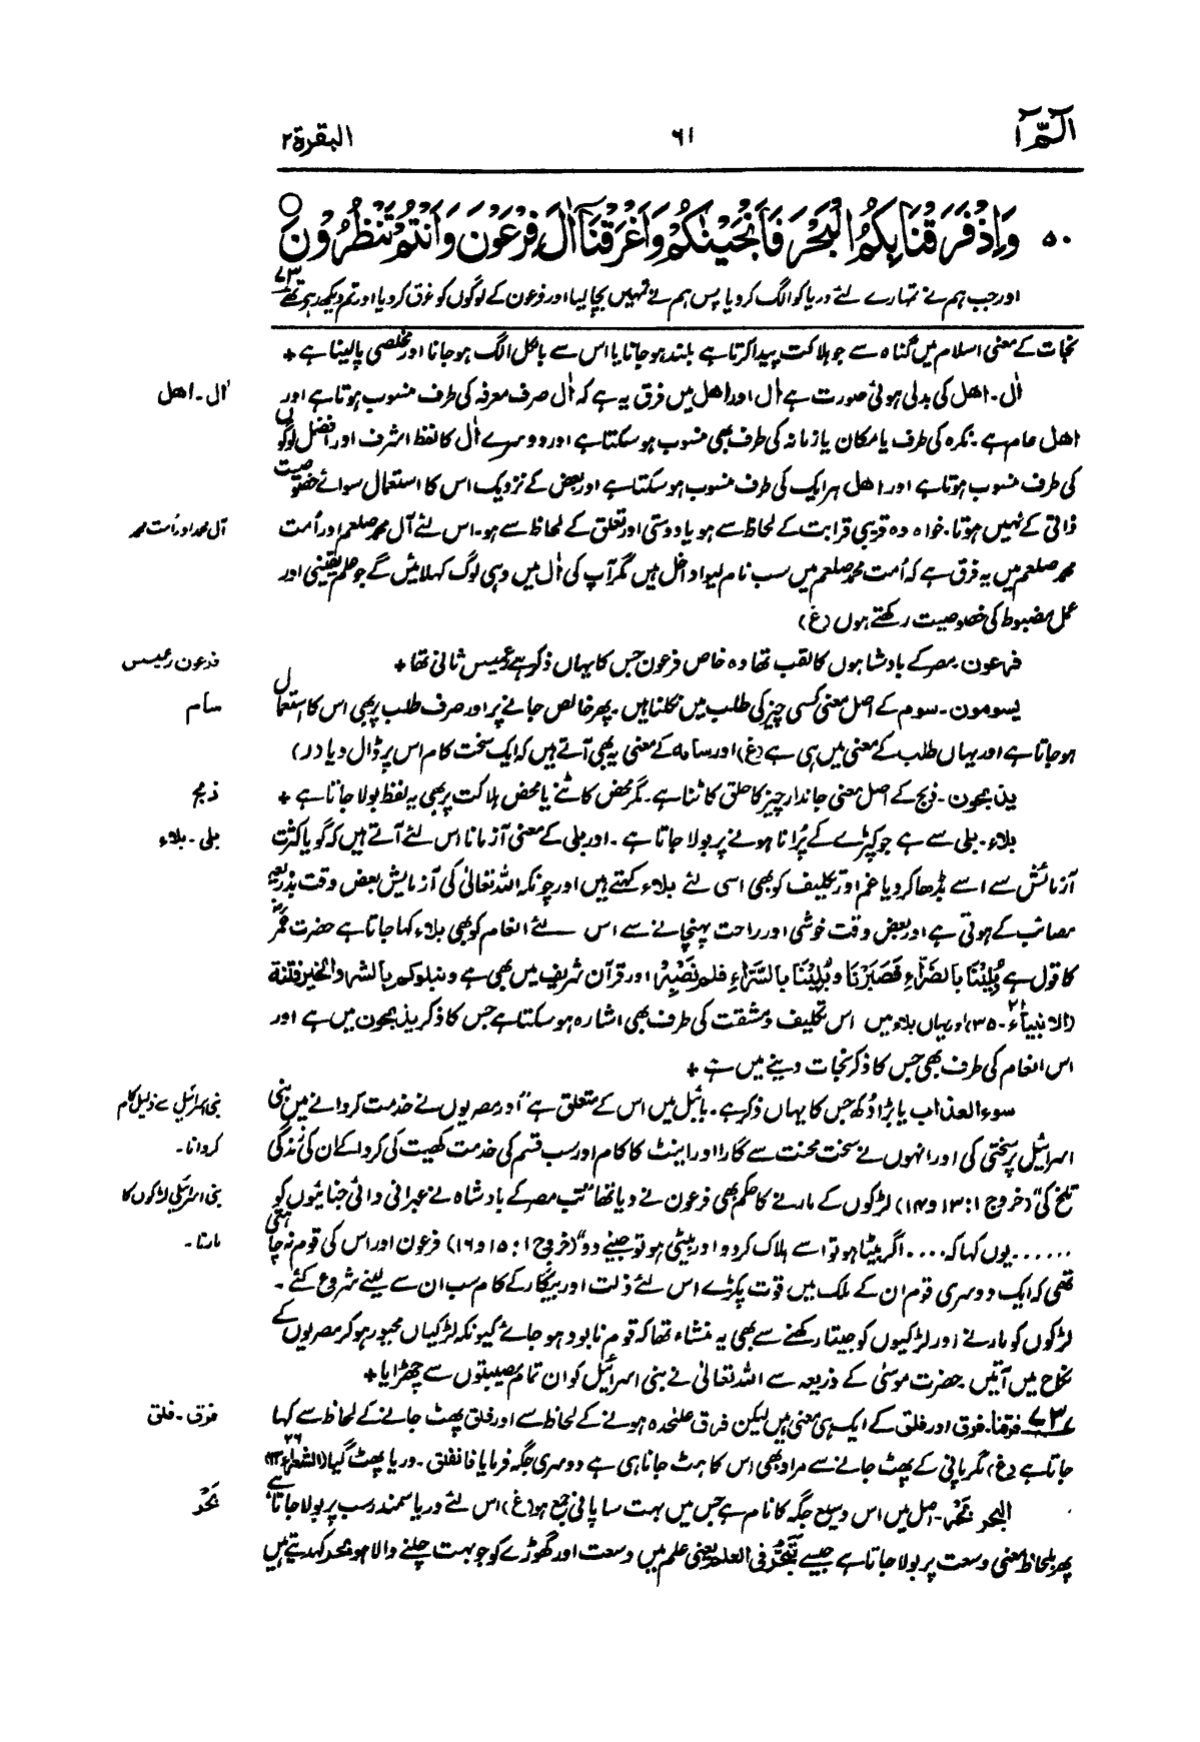 الٓمّٓ ا
۶۱
البقرة ۲
۵۰ وَاِذْ فَرَقْنَا بِكُمُ الْبَحْرَ فَاَنْجَيْنٰكُمْ وَاَغْرَقْنَآ اٰلَ فِرْعَوْنَ وَاَنْتُمْ تَنْظُرُوْنَ ○
اور جب ہم نے تمہارے لئے دریا کو الگ کر دیا پس ہم نے تمہیں بچا لیا اور فرعون کے لوگوں کو غرق کر دیا اور تم دیکھ رہے تھے ۷۳
نجات کے معنی اسلام میں گناہ سے جو ہلاکت پیدا کرتا ہے بلند ہو جانا یا اس سے بالکل الگ ہو جانا اور مخلصی پا لینا ہے +
اٰل - اھل
اٰل - اھل کی بدلی ہوئی صورت ہے اٰل اور اھل میں فرق یہ ہے کہ اٰل صرف معرفہ کی طرف منسوب ہوتا ہے اور
اھل عام ہے - نکرہ کی طرف یا مکان یا زمانہ کی طرف بھی منسوب ہو سکتا ہے اور دوسرے اٰل کا لفظ اشرف اور افضل لوگوں
کی طرف منسوب ہوتا ہے اور اھل ہر ایک کی طرف منسوب ہو سکتا ہے اور بعض کے نزدیک اس کا استعمال سوائے خصوصیت
آل محمد اور اُمت محمد
ذاتی کے نہیں ہوتا - خواہ وہ قریبی قرابت کے لحاظ سے ہو یا دوستی اور تعلق کے لحاظ سے ہو - اس لئے آل محمد صلعم اور اُمت
محمد صلعم میں یہ فرق ہے کہ اُمت محمد صلعم میں سب نام لیوا داخل ہیں مگر آپ کی اٰل میں وہی لوگ کہلائیں گے جو علم یقینی اور
عمل مضبوط کی خصوصیت رکھتے ہوں (غ)
فرعون رعمیس
فرعون - مصر کے بادشاہوں کا لقب تھا وہ خاص فرعون جس کا یہاں ذکر ہے رعمیس ثانی تھا +
سام
یسومون - سوم کے اصل معنی کسی چیز کی طلب میں نکلنا ہیں - پھر خالص جانے پر اور صرف طلب پر بھی اس کا استعمال
ہو جاتا ہے اور یہاں طلب کے معنی میں ہی ہے (غ) اور سامہ کے معنی یہ بھی آتے ہیں کہ ایک سخت کام اس پر ڈال دیا (ر)
ذبح
یذبحون - ذبح کے اصل معنی جاندار چیز کا حلق کاٹنا ہے - مگر محض کاٹنے یا محض ہلاکت پر بھی یہ لفظ بولا جاتا ہے +
بلی - بلاء
بلاء - بلی سے ہے جو کپڑے کے پُرانا ہونے پر بولا جاتا ہے - اور بلی کے معنی آزمانا اس لئے آتے ہیں کہ گویا کثرت
آزمائش سے اسے بڈھا کر دیا غم اور تکلیف کو بھی اسی لئے بلاء کہتے ہیں اور چونکہ اللہ تعالیٰ کی آزمایش بعض وقت بذریعہ
مصائب کے ہوتی ہے اور بعض وقت خوشی اور راحت پہنچانے سے اس لئے انعام کو بھی بلاء کہا جاتا ہے حضرت عمرؓ
کا قول ہے بُلِيْنَا بِالضَّرَّاءِ فَصَبَرْنَا وَبُلِيْنَا بِالسَّرَّاءِ فلم نَصْبِر اور قرآن شریف میں بھی ہے ونبلوکم بالشر والخیر فتنة
(الانبیآء ۲۱-۳۵) اور یہاں بلاء میں اس تکلیف و مشقت کی طرف بھی اشارہ ہو سکتا ہے جس کا ذکر یذبحون میں ہے اور
اس انعام کی طرف بھی جس کا ذکر نجات دینے میں ہے +
بنی اسرائیل سے ذلیل کام
سوء العذاب یا بڑا دُکھ جس کا یہاں ذکر ہے - بائبل میں اس کے متعلق ہے "اور مصریوں نے خدمت کروانے میں بنی
کروانا -
اسرائیل پر سختی کی اور انہوں نے سخت محنت سے گارا اور اینٹ کا کام اور سب قسم کی خدمت کھیت کی کروا کے ان کی زندگی
بنی اسرائیلی لڑکوں کا
تلخ کی" (خروج ۱: ۱۳ و ۱۴) لڑکوں کے مارنے کا حکم بھی فرعون نے دیا تھا "تب مصر کے بادشاہ نے عبرانی دائی جنائیوں کو
مارنا -
...... یوں کہا کہ .... اگر بیٹا ہو تو اسے ہلاک کر دو اور بیٹی ہو تو جینے دو" (خروج ۱: ۱۵ و ۱۶) فرعون اور اس کی قوم نہ چاہتی
تھی کہ ایک دوسری قوم ان کے ملک میں قوت پکڑے اس لئے ذلت اور بیگار کے کام سب ان سے لینے شروع کئے -
لڑکوں کو مارنے اور لڑکیوں کو جیتا رکھنے سے بھی یہ منشاء تھا کہ قوم نابود ہو جائے کیونکہ لڑکیاں مجبور ہو کر مصریوں کے
نکاح میں آتیں - حضرت موسیٰ کے ذریعہ سے اللہ تعالیٰ نے بنی اسرائیل کو ان تمام مصیبتوں سے چھڑایا +
فرق - فلق
۷۳ فرقنا - فرق اور فلق کے ایک ہی معنی ہیں لیکن فرق علٰحدہ ہونے کے لحاظ سے اور فلق پھٹ جانے کے لحاظ سے کہا
جاتا ہے (غ) مگر پانی کے پھٹ جانے سے مراد بھی اس کا ہٹ جانا ہی ہے دوسری جگہ فرمایا فانفلق - دریا پھٹ گیا (الشعراء ۲۶-۶۳)
بَحْر
البحر بَحْر - اصل میں اس وسیع جگہ کا نام ہے جس میں بہت سا پانی جمع ہو (غ) اس لئے دریا سمندر سب پر بولا جاتا ہے
پھر بلحاظ معنی وسعت پر بولا جاتا ہے جیسے تَبَحُّر فی العلم یعنی علم میں وسعت اور گھوڑے کو جو بہت چلنے والا ہو بحر کہدیتے ہیں